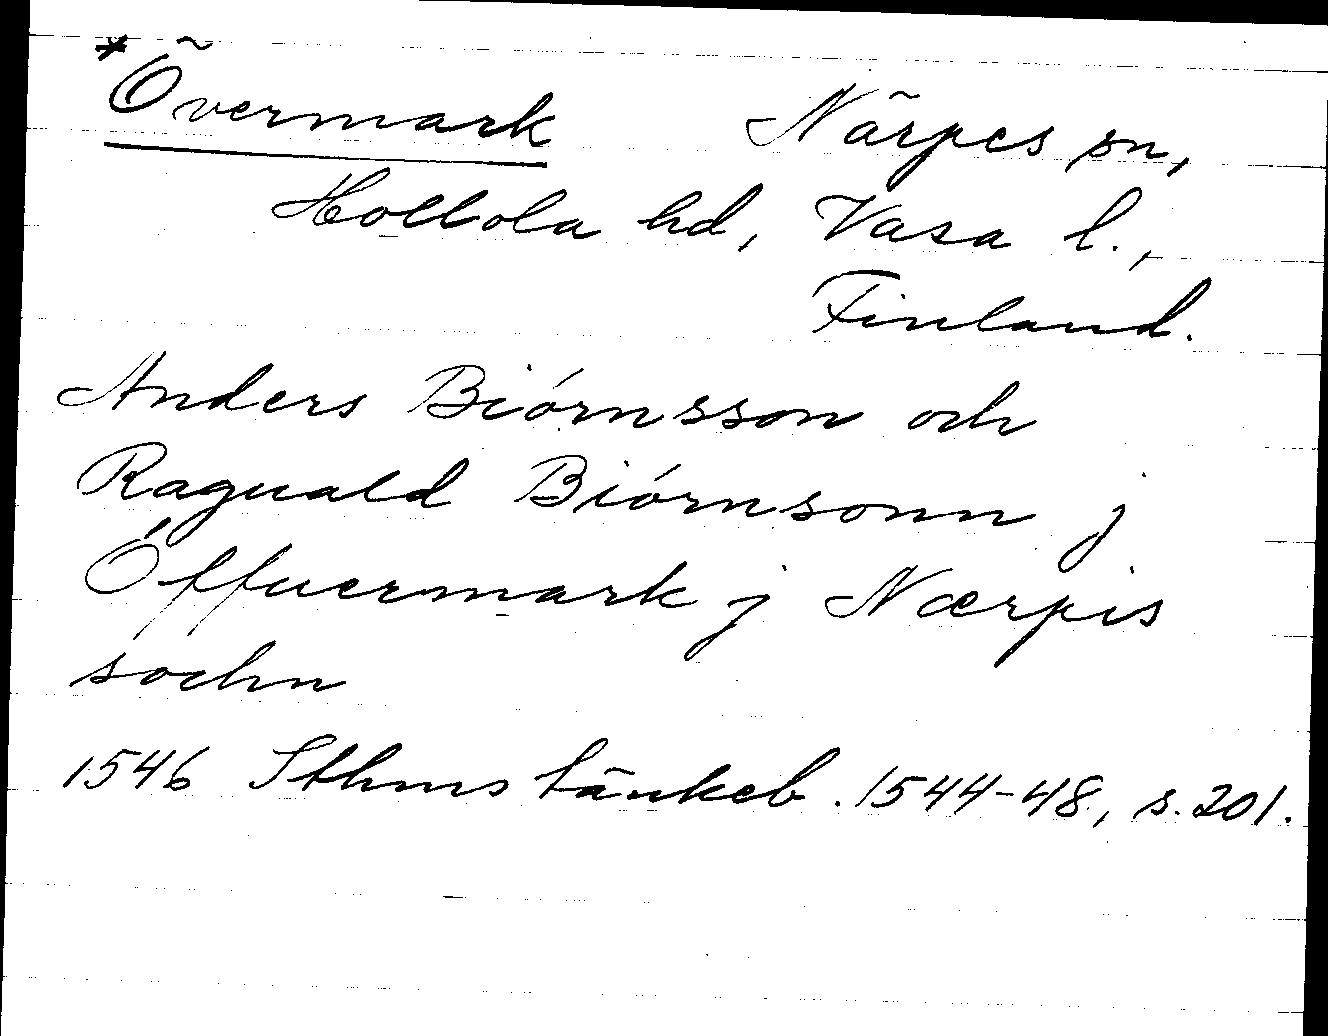 *Övermark Närpes sn,
Hollola hd, Vasa l.,
Finland.
Anders Biórnsson och
Raguald Biórnsonn j
Óffuermark j Nærpis
sochn
1546 Sthms tänkeb. 1544-48, s. 201.